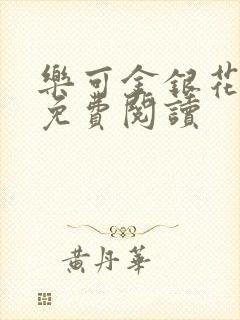 樂可金銀花
免費閱讀
黃丹華